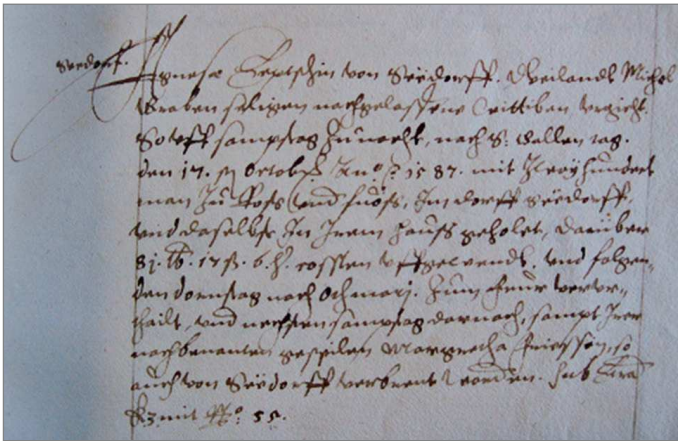 Seedorf.
Agnesa von Seedorff. Weilandt Michel
Graben seligen nachgelassene Wittiben, vergicht.
So vff sampstag zu nacht, nach S: Gallen tag.
den 17. Octob: Ano: 1587. mit zweyhundert
man zu Ross vnd fuoss, Im dorff Seedorff,
vnd daselbst In Irem hauss geholet, Darüber
81. lb. 17 ß. 6. h. costen vffgewendt, vnd folgen-
den donrstag nach zum feur verur-
thailt, vnd nechsten sampstag darnach, sampt Irer
nachbenanten gespilen Margretha so
auch von Seedorff verbrent worden. Sub
mit No: 55.